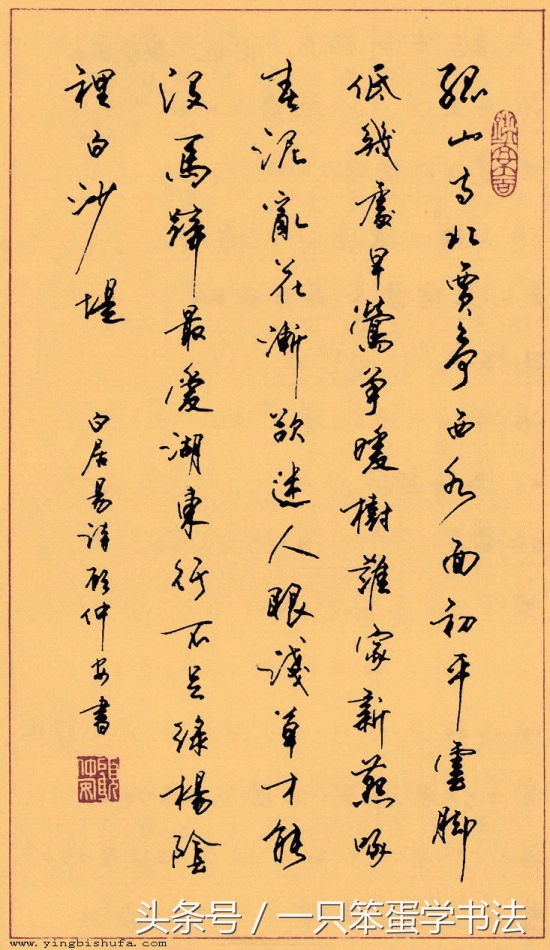 孤山寺北賈亭西水面初平雲脚
低幾處早鶯爭暖樹誰家新燕啄
春泥亂花漸欲迷人眼淺草才能
没馬蹄最愛湖東行不足緑楊陰
裡白沙堤
白居易詩顧仲安書
头条号 / 一只笨蛋学书法
www.yingbishufa.com